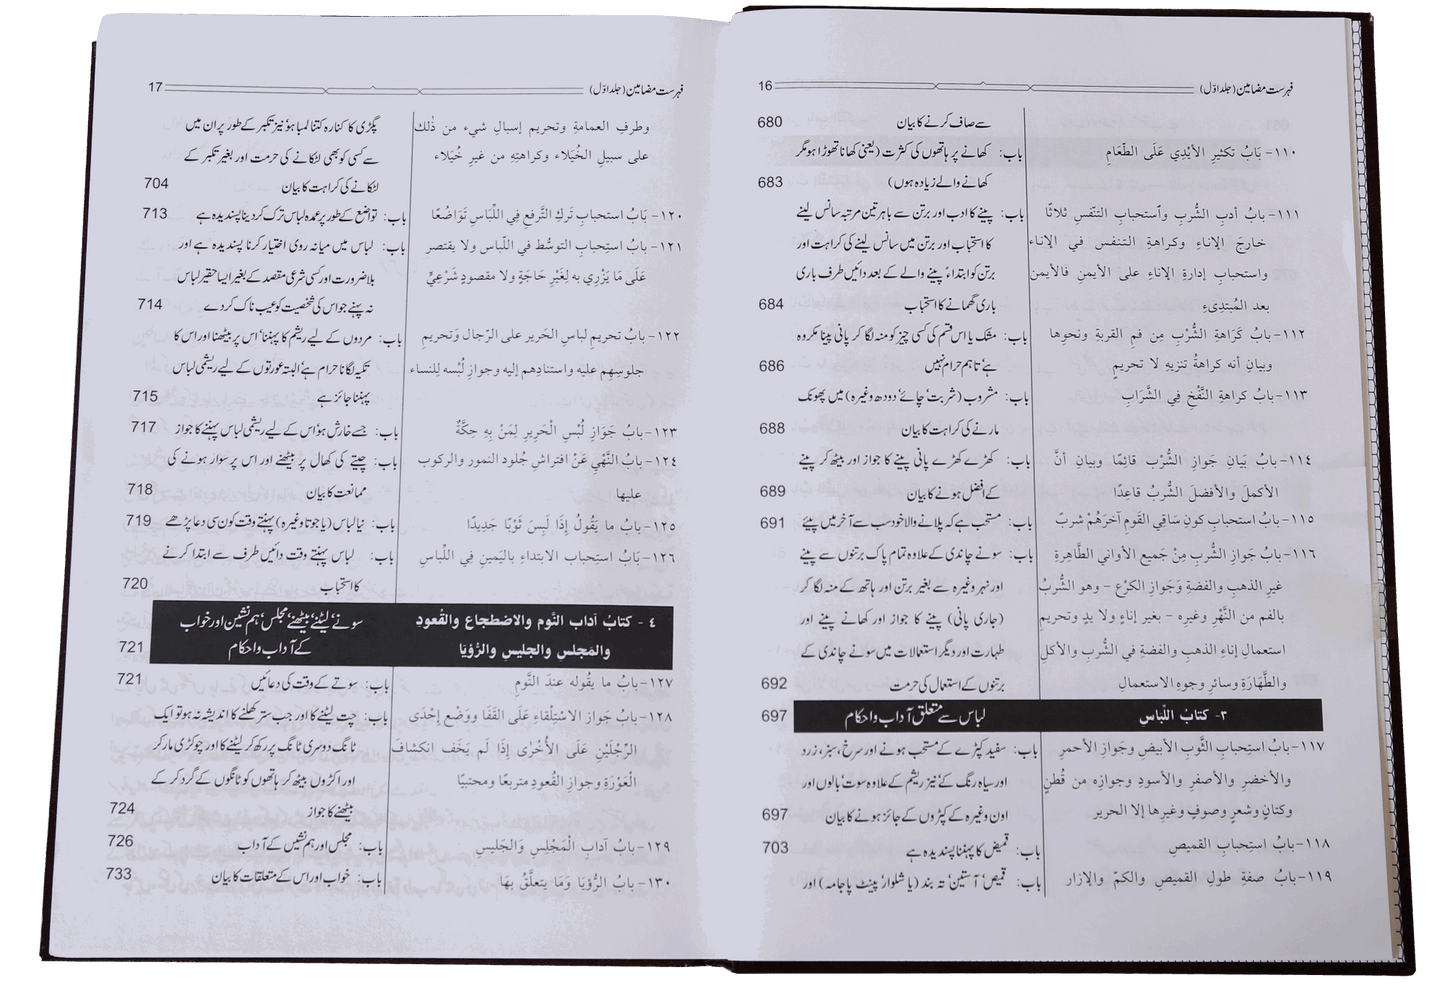 فہرست مضامین (جلد اوّل) 16
سے صاف کرنے کا بیان 680
١١٠- بَابُ تكثيرِ الأيْدِي عَلَى الطّعَامِ باب: کھانے پر ہاتھوں کی کثرت (یعنی کھانا تھوڑا ہو مگر
کھانے والے زیادہ ہوں) 683
١١١- بابُ أدبِ الشُّربِ واستحبابِ التنّفسِ ثلاثًا باب: پینے کا ادب اور برتن سے باہر تین مرتبہ سانس لینے
خارجَ الإناءِ وكراهةِ التنفسِ في الإناءِ کا استحباب اور برتن میں سانس لینے کی کراہت اور
واستحبابِ إدارةِ الإناءِ على الأيمنِ فالأيمنِ برتن کو ابتداءً پینے والے کے بعد دائیں طرف باری
بعد المُبتدِىءِ باری گھمانے کا استحباب 684
١١٢- بابُ كَرَاهةِ الشُّرْبِ مِن فمِ القربةِ ونحوِها باب: مشک یا اس قسم کی کسی چیز کو منہ لگا کر پانی پینا مکروہ
وبيانِ أنه كراهةُ تنزيهٍ لا تحريمٍ ہے‘ تاہم حرام نہیں 686
١١٣- بابُ كراهةِ النَّفْخِ فِي الشَّرَابِ باب: مشروب (شربت‘ چائے‘ دودھ وغیرہ) میں پھونک
مارنے کی کراہت کا بیان 688
١١٤- بابُ بَيَانِ جَوازِ الشُّرْبِ قائِمًا وبيانِ أنَّ باب: کھڑے کھڑے پانی پینے کا جواز اور بیٹھ کر پینے
الأكملَ والأفضلَ الشُّربُ قاعِدًا کے افضل ہونے کا بیان 689
١١٥- بابُ استحبابِ كونِ سَاقِي القَومِ آخرَهُمْ شربً باب: مستحب ہے کہ پلانے والا خود سب سے آخر میں پیئے 691
١١٦- بابُ جَوازِ الشُّربِ مِنْ جَميعِ الأواني الطَّاهِرةِ باب: سونے چاندی کے علاوہ تمام پاک برتنوں سے پینے
غيرِ الذهبِ والفضةِ وَجَوازِ الكَرْعِ - وهو الشُّربُ اور نہر وغیرہ سے بغیر برتن اور ہاتھ کے منہ لگا کر
بالفم من النَّهْرِ وغيرِه - بغيرِ إناءٍ ولا يدٍ وتحريمِ (جاری پانی) پینے کا جواز اور کھانے پینے اور
استعمالِ إناءِ الذهبِ والفضةِ في الشُّربِ والأكلِ طہارت اور دیگر استعمالات میں سونے چاندی کے
والطَّهَارَةِ وسائرِ وجوهِ الاستعمالِ برتنوں کے استعمال کی حرمت 692
٣- كتابُ اللّباسِ لباس سے متعلق آداب و احکام 697
١١٧- بابُ استِحبابِ الثَّوبِ الأبيضِ وجَوازِ الأحمرِ باب: سفید کپڑے کے مستحب ہونے اور سرخ، سبز، زرد
والأخضرِ والأصفرِ والأسودِ وجوازِه من قُطنٍ اور سیاہ رنگ کے‘ نیز ریشم کے علاوہ سوت‘ بالوں اور
وكتانٍ وشعرٍ وصوفٍ وغيرِها إلا الحريرِ اون وغیرہ کے کپڑوں کے جائز ہونے کا بیان 697
١١٨- بابُ استِحبابِ القميصِ باب: قمیض کا پہننا پسندیدہ ہے 703
١١٩- بابُ صفةِ طولِ القميصِ والكمّ والإزارِ باب: قمیص‘ آستین‘ تہ بند (یا شلوار‘ پینٹ پاجامہ) اور
فہرست مضامین (جلد اوّل) 17
وطرفِ العمامةِ وتحريمِ إسبالِ شيء من ذٰلك پگڑی کا کنارہ کتنا لمبا ہو‘ نیز تکبر کے طور پر ان میں
على سبيلِ الخُيَلاء وكراهتِهِ من غيرِ خُيَلاء سے کسی کو بھی لٹکانے کی حرمت اور بغیر تکبر کے
لٹکانے کی کراہت کا بیان 704
١٢٠- بَابُ استحبابِ تَركِ التَّرفعِ فِي اللِّبَاسِ تَوَاضُعًا باب: تواضع کے طور پر عمدہ لباس ترک کر دینا پسندیدہ ہے 713
١٢١- بابُ استِحبابِ التوسُّطِ في اللباس ولا يقتصر باب: لباس میں میانہ روی اختیار کرنا پسندیدہ ہے اور
عَلَى مَا يَزْرِي بِه لِغَيْرِ حَاجَةٍ ولا مقصودٍ شَرْعِيٍّ بلا ضرورت اور کسی شرعی مقصد کے بغیر ایسا حقیر لباس
نہ پہنے جو اس کی شخصیت کو عیب ناک کر دے 714
١٢٢- بابُ تحريمِ لباسِ الحَرير على الرّجال وَتحريمِ باب: مردوں کے لیے ریشم کا پہننا‘ اس پر بیٹھنا اور اس کا
جلوسِهم عليه واستنادِهم إليه وجوازِ لُبْسه لِلنساء تکیہ لگانا حرام ہے‘ البتہ عورتوں کے لیے ریشمی لباس
پہننا جائز ہے 715
١٢٣- بابُ جَوَازِ لُبْسِ الْحَرِيرِ لِمَنْ بِهِ حِكَّةٌ باب: جسے خارش ہو‘ اس کے لیے ریشمی لباس پہننے کا جواز 717
١٢٤- بابُ النَّهْيِ عَنْ افتراشِ جُلود النمور والركوب باب: چیتے کی کھال پر بیٹھنے اور اس پر سوار ہونے کی
عليها ممانعت کا بیان 718
١٢٥- بابُ ما يَقُولُ إذَا لَبِسَ ثَوْبًا جَدِيدًا باب: نیا لباس (یا جوتا وغیرہ) پہنتے وقت کون سی دعا پڑھے 719
١٢٦- بَابُ استِحباب الابتداءِ باليَمينِ فِي اللِّباسِ باب: لباس پہنتے وقت دائیں طرف سے ابتدا کرنے
کا استحباب 720
٤ - كتابُ آدابِ النَّومِ والاضطجاعِ والقُعودِ سونے‘ لیٹنے‘ بیٹھنے‘ مجلس‘ ہم نشین اور خواب
والمَجلسِ والجليسِ والرُّؤيَا کے آداب و احکام 721
١٢٧- بابُ ما يقُوله عِندَ النَّومِ باب: سوتے کے وقت کی دعائیں 721
١٢٨- بابُ جَوازِ الاسْتِلْقاءِ عَلَى القَفَا ووَضْعِ إحْدَى باب: چت لیٹنے کا اور جب ستر کھلنے کا اندیشہ نہ ہو تو ایک
الرِّجْلَيْنِ عَلَى الأُخْرَى إذَا لَم يَخَف انكشافَ ٹانگ دوسری ٹانگ پر رکھ کر لیٹنے کا اور چوکڑی مار کر
الْعَوْرَةِ وجوازِ القُعودِ متربعًا ومحتبيًا اور اکڑوں بیٹھ کر ہاتھوں کو ٹانگوں کے گرد کر کے
بیٹھنے کا جواز 724
١٢٩- بابُ آدابِ الْمَجْلِسِ وَالجَلِيسِ باب: مجلس اور ہم نشیں کے آداب 726
١٣٠- بابُ الرُّؤيَا وَمَا يتعلَّقُ بهَا باب: خواب اور اس کے متعلقات کا بیان 733